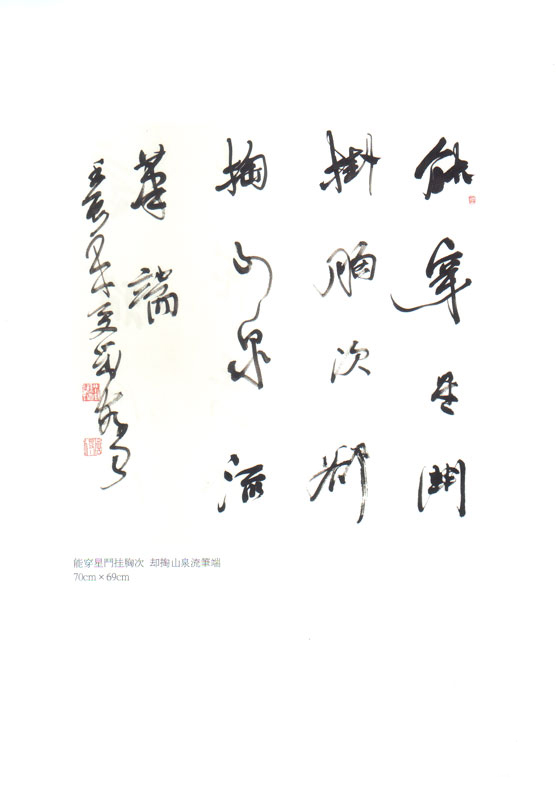 能穿星鬥
掛胸次却
掬山泉流
筆端
能穿星鬥挂胸次 却掬山泉流筆端
70cm×69cm